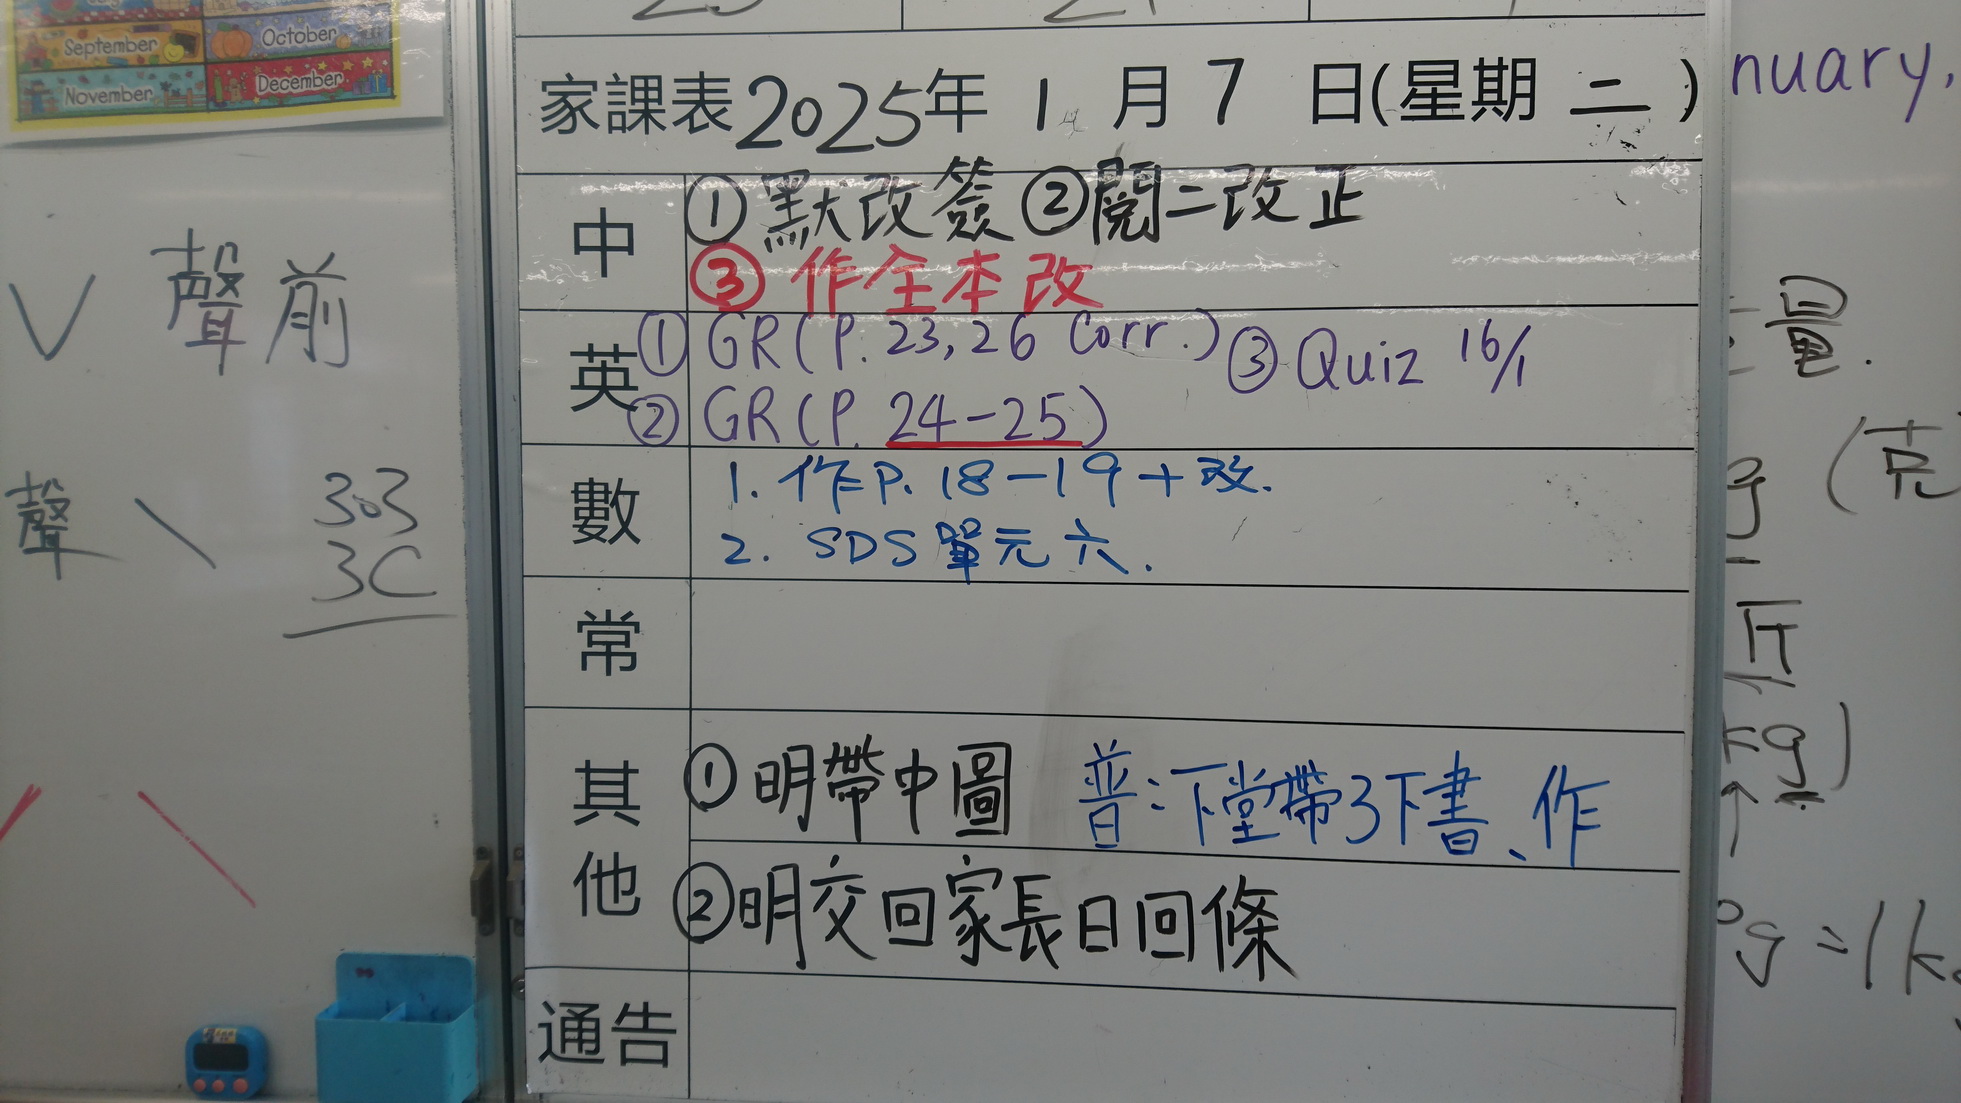 September October
November December
家課表 2025年 1 月 7 日(星期 二 )
中 ① 默改簽 ② 閱二改正
③ 作全本改
英 ① GR(P. 23, 26 Corr.) ③ Quiz 16/1
② GR(P. 24-25)
數 1. 作P. 18-19+改.
2. SDS單元六.
常
其他 ① 明帶中圖 普:下堂帶3下書、作
② 明交回家長日回條
通告
V 聲前
聲 \ 303
3C
nuary,
量.
g (克
斤
kg)
0g = 1k